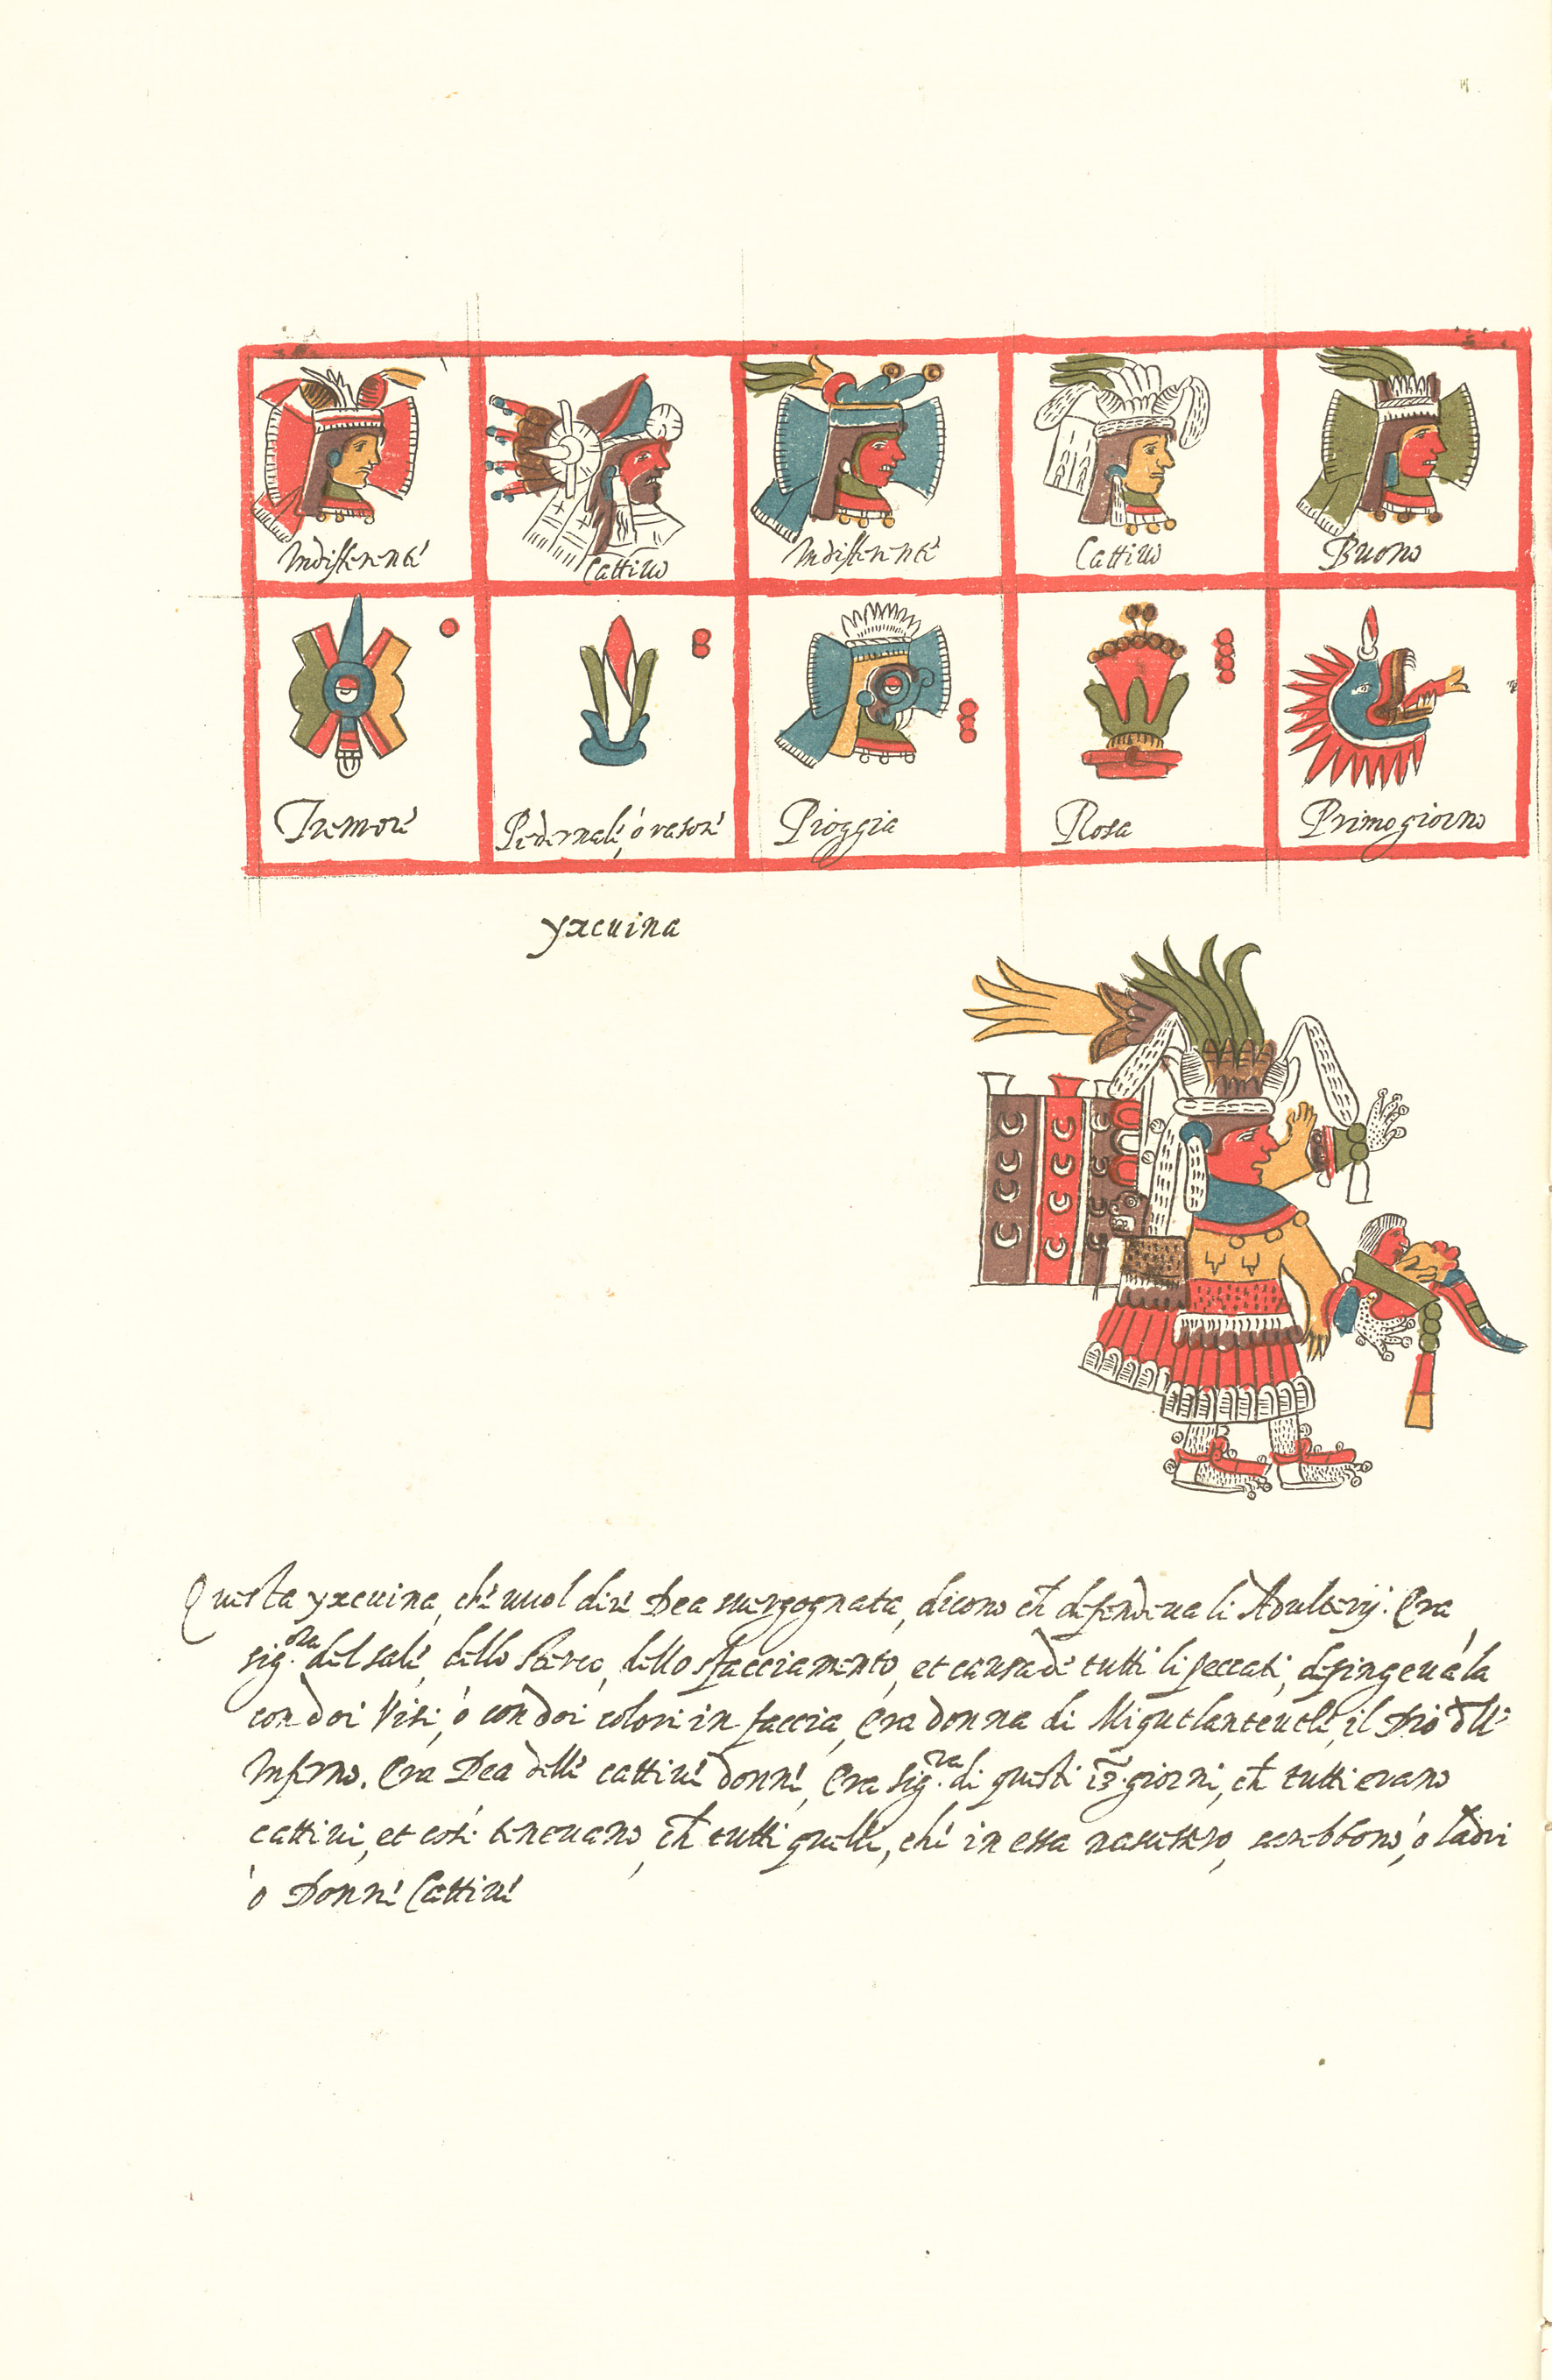 Indifferente
Cattivo
Indifferente
Cattivo
Buono
Tremore
Pedernale, ò rasore
Pioggia
Rosa
Primo giorno
yxcuina
Questa yxcuina, che uuol dire Dea suergognata, dicono ch̄ difendeua li Adulterij. Era
sig.ora del sale, dello sterco, dello sfacciamento, et causa de tutti li peccati, depingeuāla
con doi Visi, ò con doi colori in faccia, Era donna di Miquitlanteutle, il Dio dell'
Inferno. Era Dea delle cattiue donne, Era sig.ra di questi 13. giorni, ch̄ tutti erano
cattiui, et così teneuano, ch̄ tutti quelli, che in essa nascessero, sarebbono, ò ladri
ò Donne Cattiue